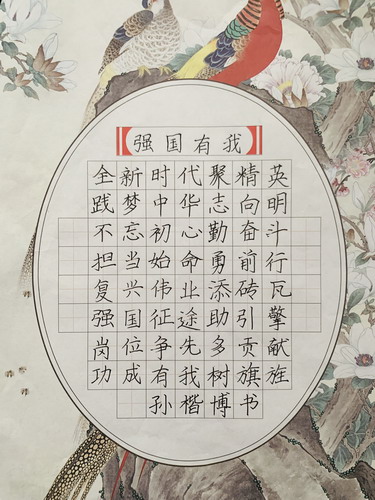 强国有我
全新时代聚精英
践梦中华志向明
不忘初心勤奋斗
担当始命勇前行
复兴伟业添砖瓦
强国征途助引擎
岗位争先多贡献
功成有我树旗旌
孙楷博书